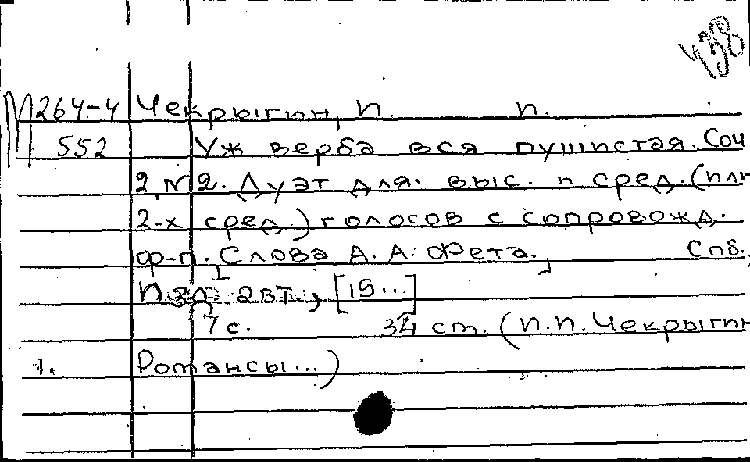 438
М264-4 Чекрыгин, П. П.
552 Уж верба вся пушистая. Соч
2, № 2. Дуэт для выс. и сред. (или
2-х сред.) голосов с сопровожд.
ф-п. [Слова А. А. Фета.] Спб.,
П. изд. авт., [19...]
7 с. 34 ст. (П. П. Чекрыгин
1. Романсы...)